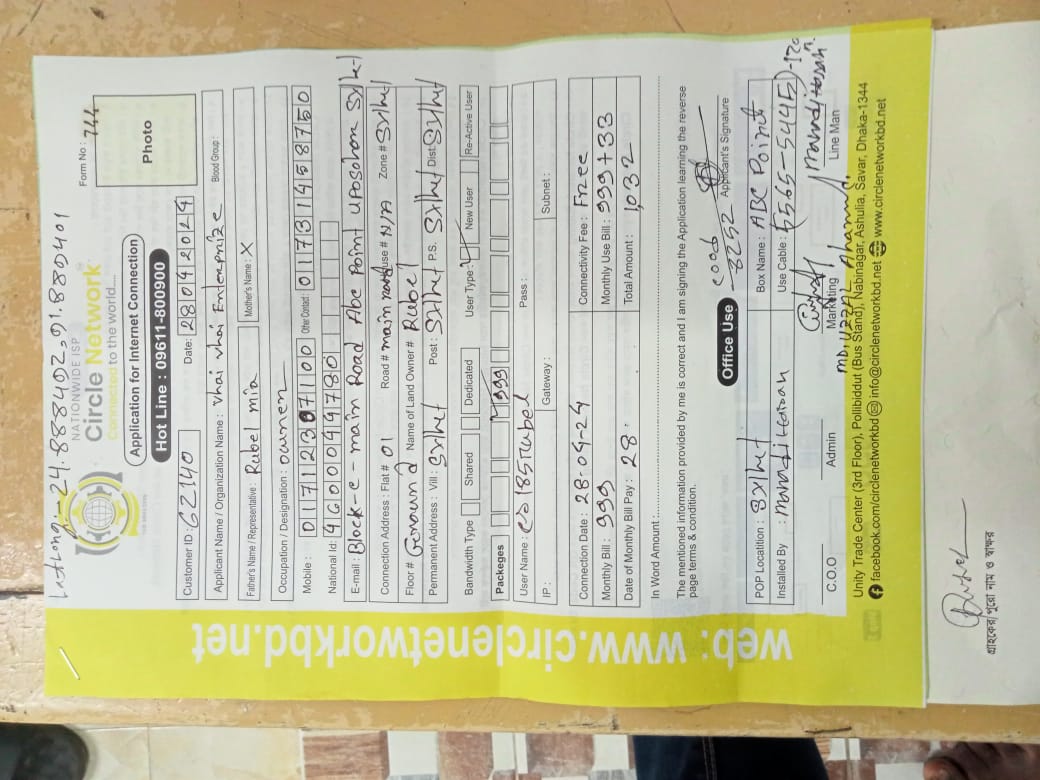 Lat Long:-24.888402, 91.880401
NATIONWIDE ISP
Circle Network
Connected to the world....
Form No : 744
Application for Internet Connection
Hot Line : 09611-800900
Photo
Customer ID : 62140 Date: 28042024
Applicant Name / Organization Name : vhai vhai Enterprize Blood Group :
Father's Name / Representative : Rubel mia Mother's Name : X
Occupation / Designation : owner
Mobile : 01712307100 Other Contact : 01731458750
National Id:
E-mail : Block-c - main Road Abc Point uposohom Syl-l
Connection Address : Flat # 01 Road # main road use # N/A Zone # Sylhet
Floor # Name of Land Owner # Rubel
Permanent Address : Vill : Sylhet Post : Sylhet P.S. Sylhet Dist: Sylhet
Bandwidth Type Shared Dedicated User Type : New User Re-Active User
Packeges 999
User Name : Pass :
IP : Gateway : Subnet :
Connection Date : 28-04-24 Connectivity Fee : Free
Monthly Bill : 999 Monthly Use Bill : 999+33
Date of Monthly Bill Pay : 28 Total Amount : 1,032
In Word Amount :
The mentioned information provided by me is correct and I am signing the Application learning the reverse
page terms & condition.
Applicant's Signature
Office Use
POP Locattion : Sylhet Box Name : ABC Point
Installed By : Use Cable :
C.O.O Admin Marketing Line Man
Unity Trade Center (3rd Floor), Pollibiddut (Bus Stand), Nabinagar, Ashulia, Savar, Dhaka-1344
facebook.com/circlenetworkbd info@circlenetworkbd.net www.circlenetworkbd.net
web: www.circlenetworkbd.net
গ্রাহকের পুরো নাম ও স্বাক্ষর